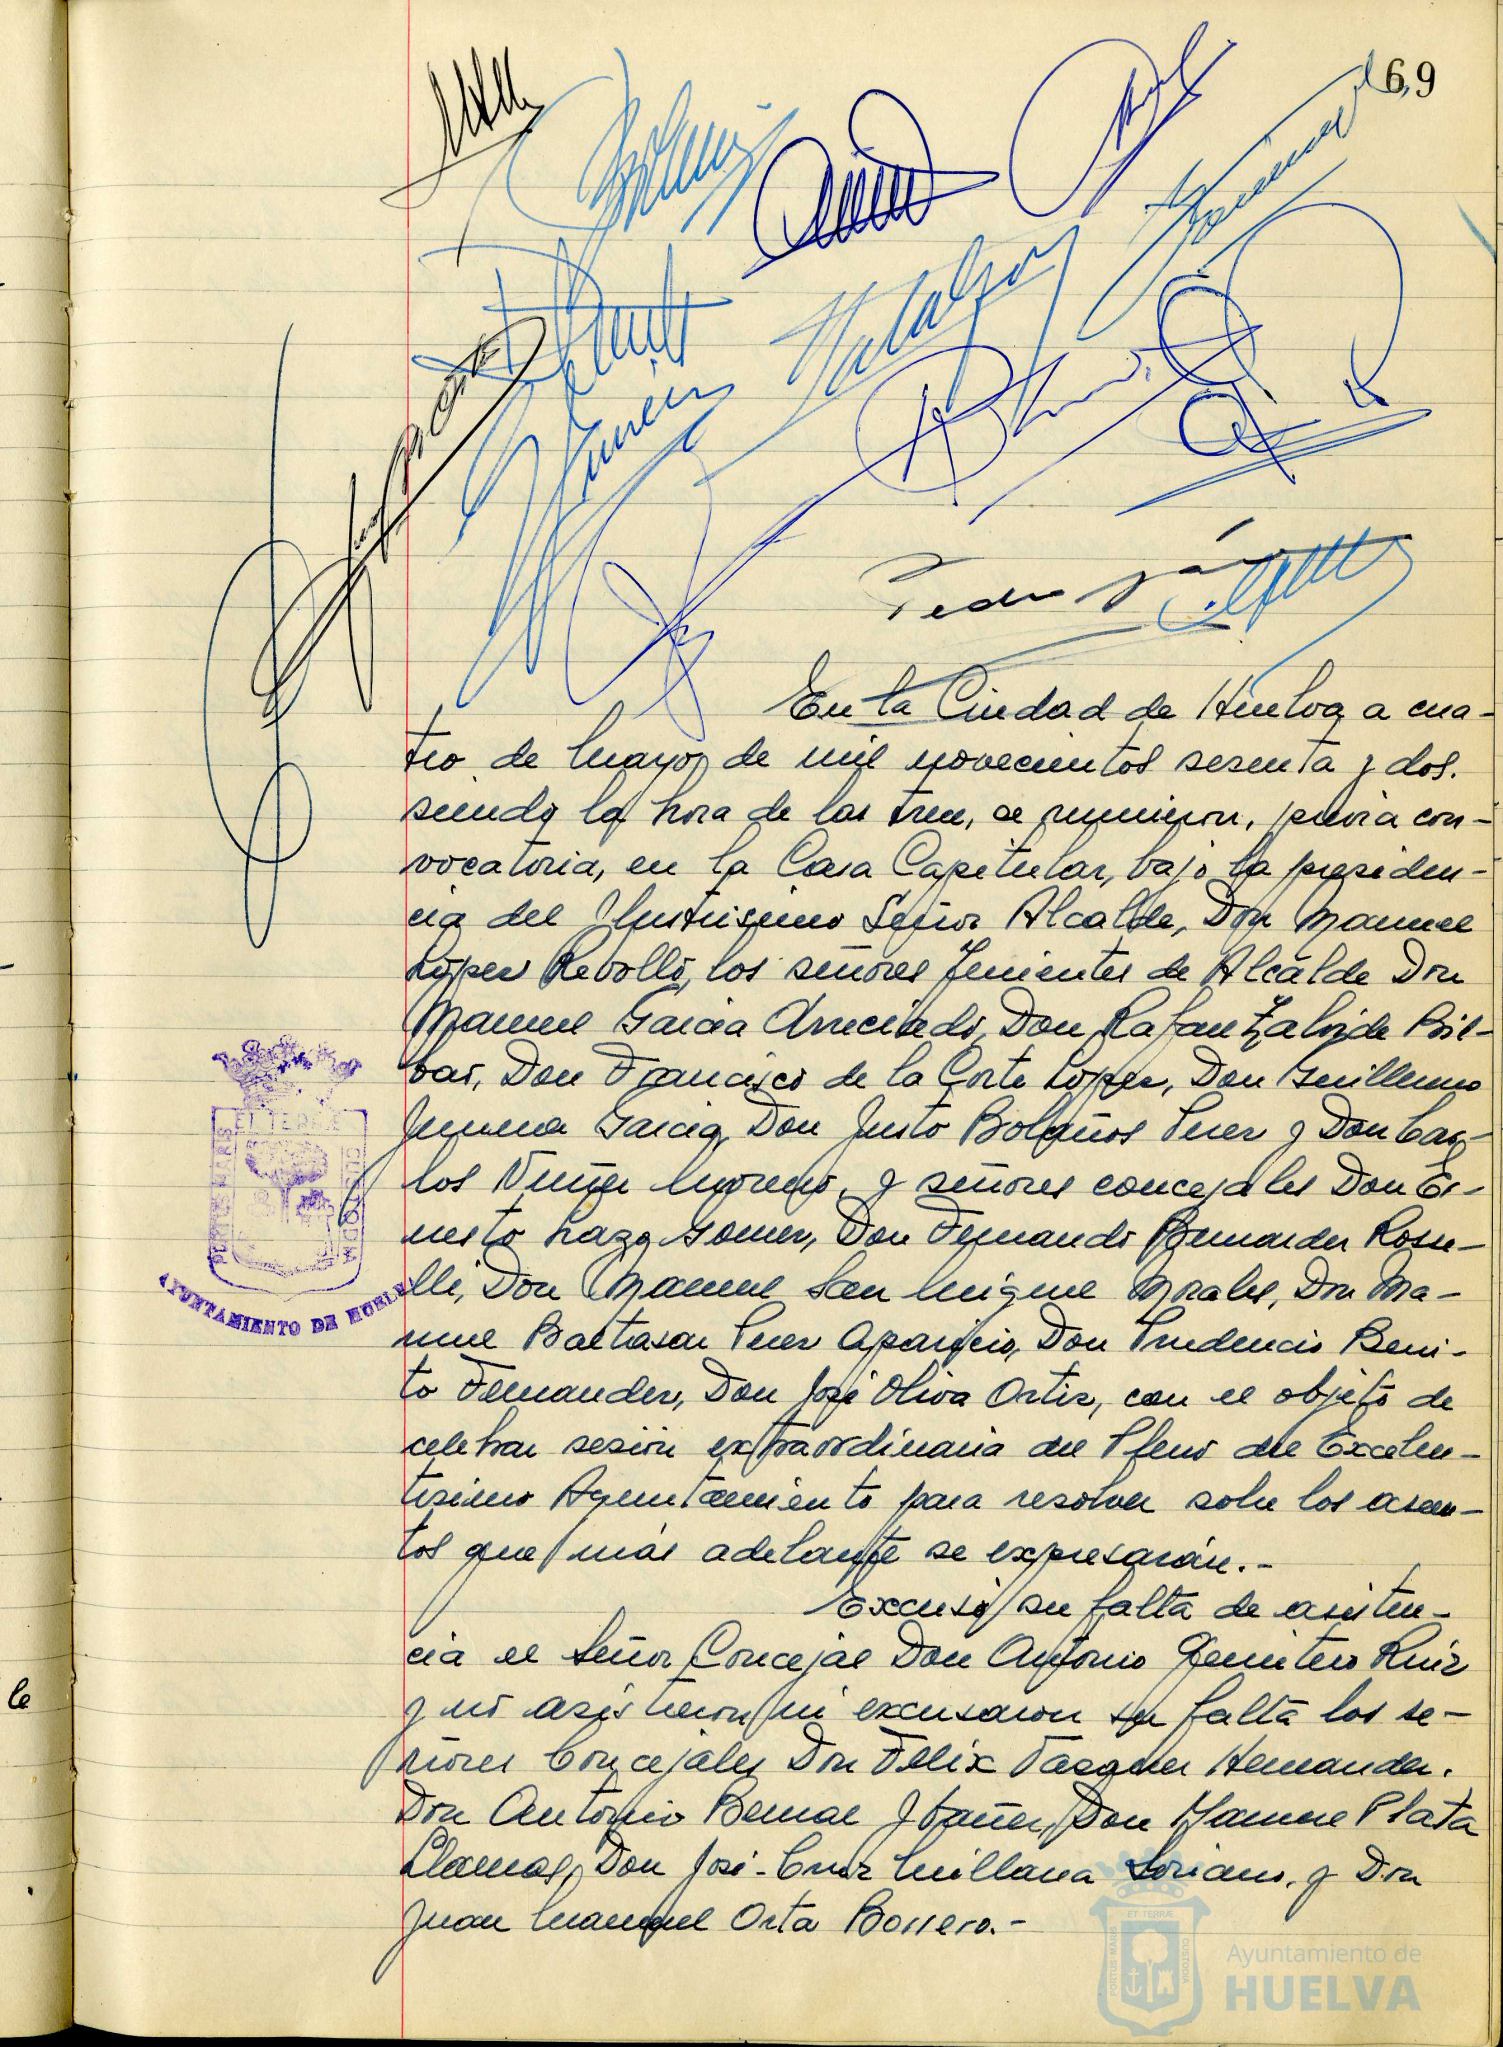 69
Pedro
En la Ciudad de Huelva a cua-
tro de Mayo de mil novecientos sesenta y dos.
siendo la hora de las tres, se reunieron, previa con-
vocatoria, en la Casa Capitular, bajo la presiden-
cia del Ilustrisimo Señor Alcalde, Don Manuel
López Rebollo, los señores Tenientes de Alcalde Don
Manuel Garcia Arreciado, Don Rafael Zalvide Bil-
bao, Don Francisco de la Corte López, Don Guillermo
Jimenez Garcia, Don Justo Bolaños Perez y Don Car-
los Nuñez Moreno, y señores concejales Don Er-
nesto Lazo Gomez, Don Fernando Bermudez Rose-
lli, Don Manuel San Miguel Morales, Don Ma-
nuel Baltasar Perez Aparicio, Don Prudencio Beni-
to Fernandez, Don José Oliva Ortiz, con el objeto de
celebrar sesión extraordinaria del Pleno del Excelen-
tisimo Ayuntamiento para resolver sobre los asun-
tos que más adelante se expresarán.-
Excusó su falta de asisten-
cia el Señor Concejal Don Antonio Ruiz
y nó asistieron ni excusaron su falta los se-
ñores Concejales Don Félix Vazquez Hernandez.
Don Antonio Bernal Ibañez, Don Manuel Plata
Llamas, Don José-Cruz Millana Soriano, y Don
Juan Manuel Orta Borrero.-
PORTUS MARIS
ET TERRÆ
CUSTODIA
AYUNTAMIENTO DE HUELVA
le
PORTUS MARIS
ET TERRÆ
CUSTODIA
Ayuntamiento de
HUELVA